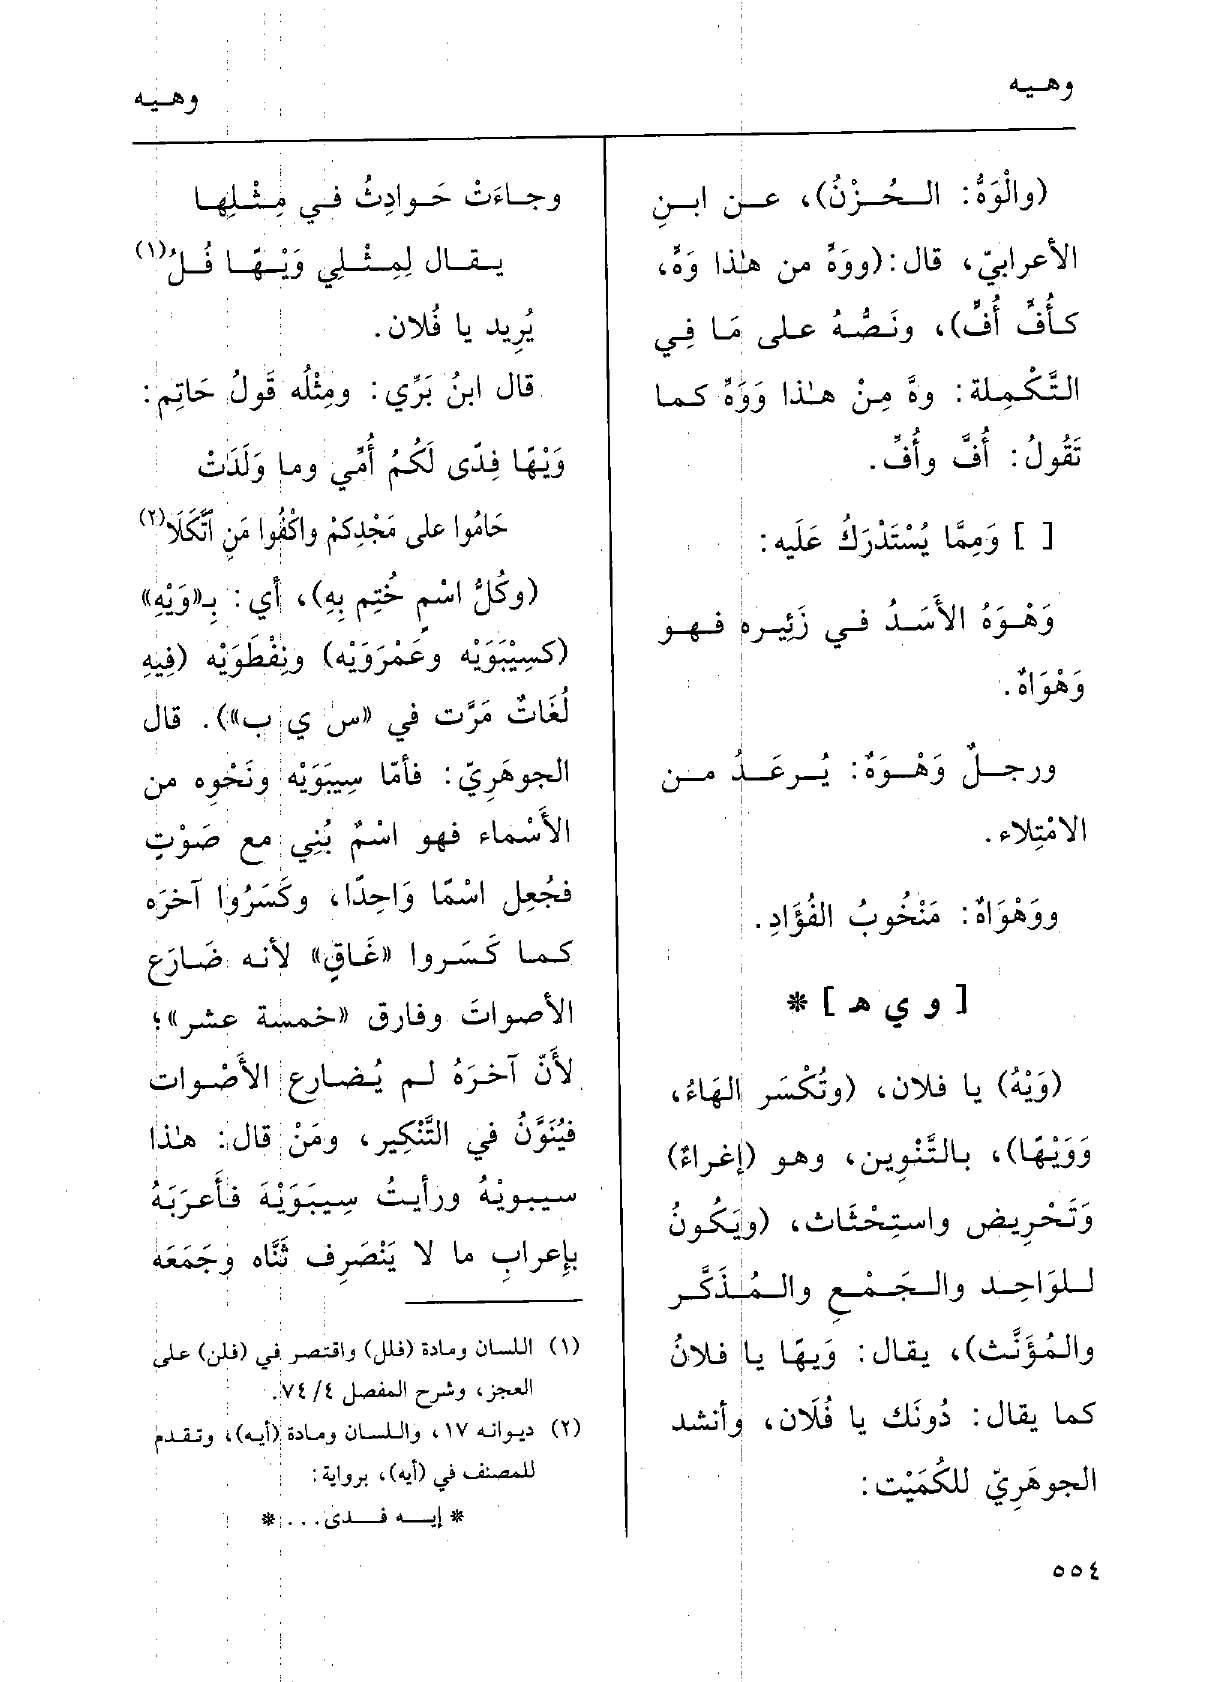 وهـيه
وهـيه
(والْوَهُّ: الـحُـزْنُ)، عـن ابـنِ
الأعرابيّ، قال: (ووَهٍّ من هٰذا وَهٌ،
كـأُفٍّ أُفٌّ)، ونَـصُّـهُ على مَـا فِي
التَّكْـمِـلة: وهَّ مِـنْ هـٰذا وَوَهٍّ كـما
تَقُولُ: أُفَّ وأُفٍّ.
[ ] وَمِمَّا يُسْتَدْرَكُ عَلَيه:
وَهْـوَهَ الأَسَـدُ فـي زَئِيـرِه فـهـو
وَهْوَاهٌ.
ورجـلٌ وَهْـوَهٌ: يُـرعَـدُ مـن
الامْتِلاء.
ووَهْوَاهٌ: مَنْخُوبُ الفُؤَادِ.
[ و ي هـ ] *
(وَيْهْ) يا فلان، (وتُكْسَر الهَاءُ،
وَوَيْهًا)، بـالتَّنْوِين، وهـو (إغراءٌ)
وَتَحْرِيض واستِحْثَاث، (ويَكُونُ
لـلوَاحِـد والـجَـمْـعِ والـمُـذَكَّـر
والمُؤَنَّث)، يقال: وَيهًا يا فلانُ
كما يقال: دُونَك يا فُلَان، وأنشد
الجوهَرِيّ للكُمَيْت:
وجـاءَتْ حَـوادِثُ فـي مِـثْـلِهـا
يـقـال لِمِـثْـلِي وَيْـهًـا فُـلُ(١)
يُرِيد يا فُلان.
قال ابنُ بَرِّي: ومِثْلُه قَولُ حَاتِم:
وَيْهًا فِدًى لَكُمُ أُمِّي وما وَلَدَتْ
حَامُوا على مَجْدِكمْ واكْفُوا مَنِ اتَّكَلَا(٢)
(وكُلُّ اسْمٍ خُتِم بِهِ)، أي: بـ«وَيْهِ»
(كسِيْبَوَيْه وعَمْرَوَيْه) ونِفْطَوَيْه (فِيهِ
لُغَاتٌ مَرَّت في «س ي ب»). قال
الجوهَرِيّ: فأمّا سِيبَوَيْه ونَحْوِه من
الأَسْماء فهو اسْمٌ بُنِي مع صَوْتٍ
فجُعِل اسْمًا وَاحِدًا، وكَسَرُوا آخرَه
كـمـا كَسَـروا «غَـاقٍ» لأنـه ضَـارَع
الأصواتَ وفارق «خمسة عشر»؛
لأَنّ آخـرَهُ لـم يُـضـارِعِ الأَصْـوات
فيُنَوَّنُ في التَّنْكِير، ومَنْ قال: هٰذا
سـيبـويْهُ ورأيـتُ سِيبَوَيْهَ فـأَعـرَبَهُ
بإعرابِ ما لا يَنْصَرِف ثَنَّاه وجَمَعَه
(١) اللسان ومادة (فلل) واقتصر في (فلن) على
العجز، وشرح المفصل ٧٤/٤.
(٢) ديوانه ١٧، واللسان ومادة (أيه)، وتقدم
للمصنف في (أيه)، برواية:
* إيـه فـدى... *
٥٥٤